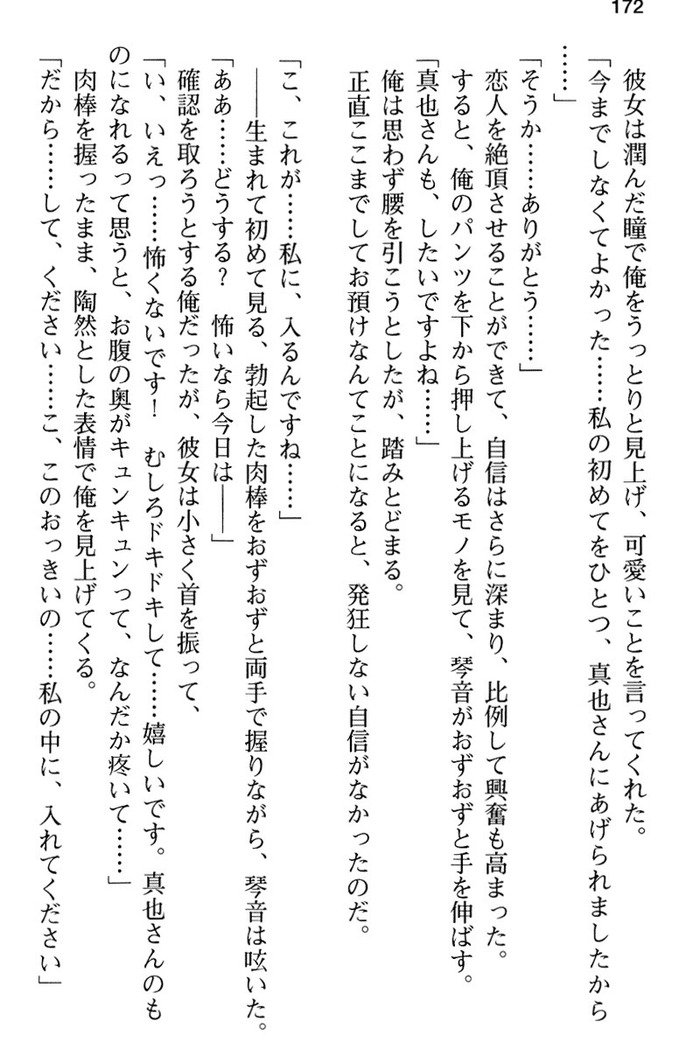 172
彼女は潤んだ瞳で俺をうっとりと見上げ、可愛いことを言ってくれた。
「今までしなくてよかった……私の初めてをひとつ、真也さんにあげられましたから
……」
「そうか……ありがとう……」
恋人を絶頂させることができて、自信はさらに深まり、比例して興奮も高まった。
すると、俺のパンツを下から押し上げるモノを見て、琴音がおずおずと手を伸ばす。
「真也さんも、したいですよね……」
俺は思わず腰を引こうとしたが、踏みとどまる。
正直ここまでしてお預けなんてことになると、発狂しない自信がなかったのだ。
「こ、これが……私に、入るんですね……」
――生まれて初めて見る、勃起した肉棒をおずおずと両手で握りながら、琴音は呟いた。
「ああ……どうする？　怖いなら今日は――」
確認を取ろうとする俺だったが、彼女は小さく首を振って、
「い、いえっ……怖くないです！　むしろドキドキして……嬉しいです。真也さんのも
のになれるって思うと、お腹の奥がキュンキュンって、なんだか疼いて……」
肉棒を握ったまま、陶然とした表情で俺を見上げてくる。
「だから……して、ください……こ、このおっきいの……私の中に、入れてください」